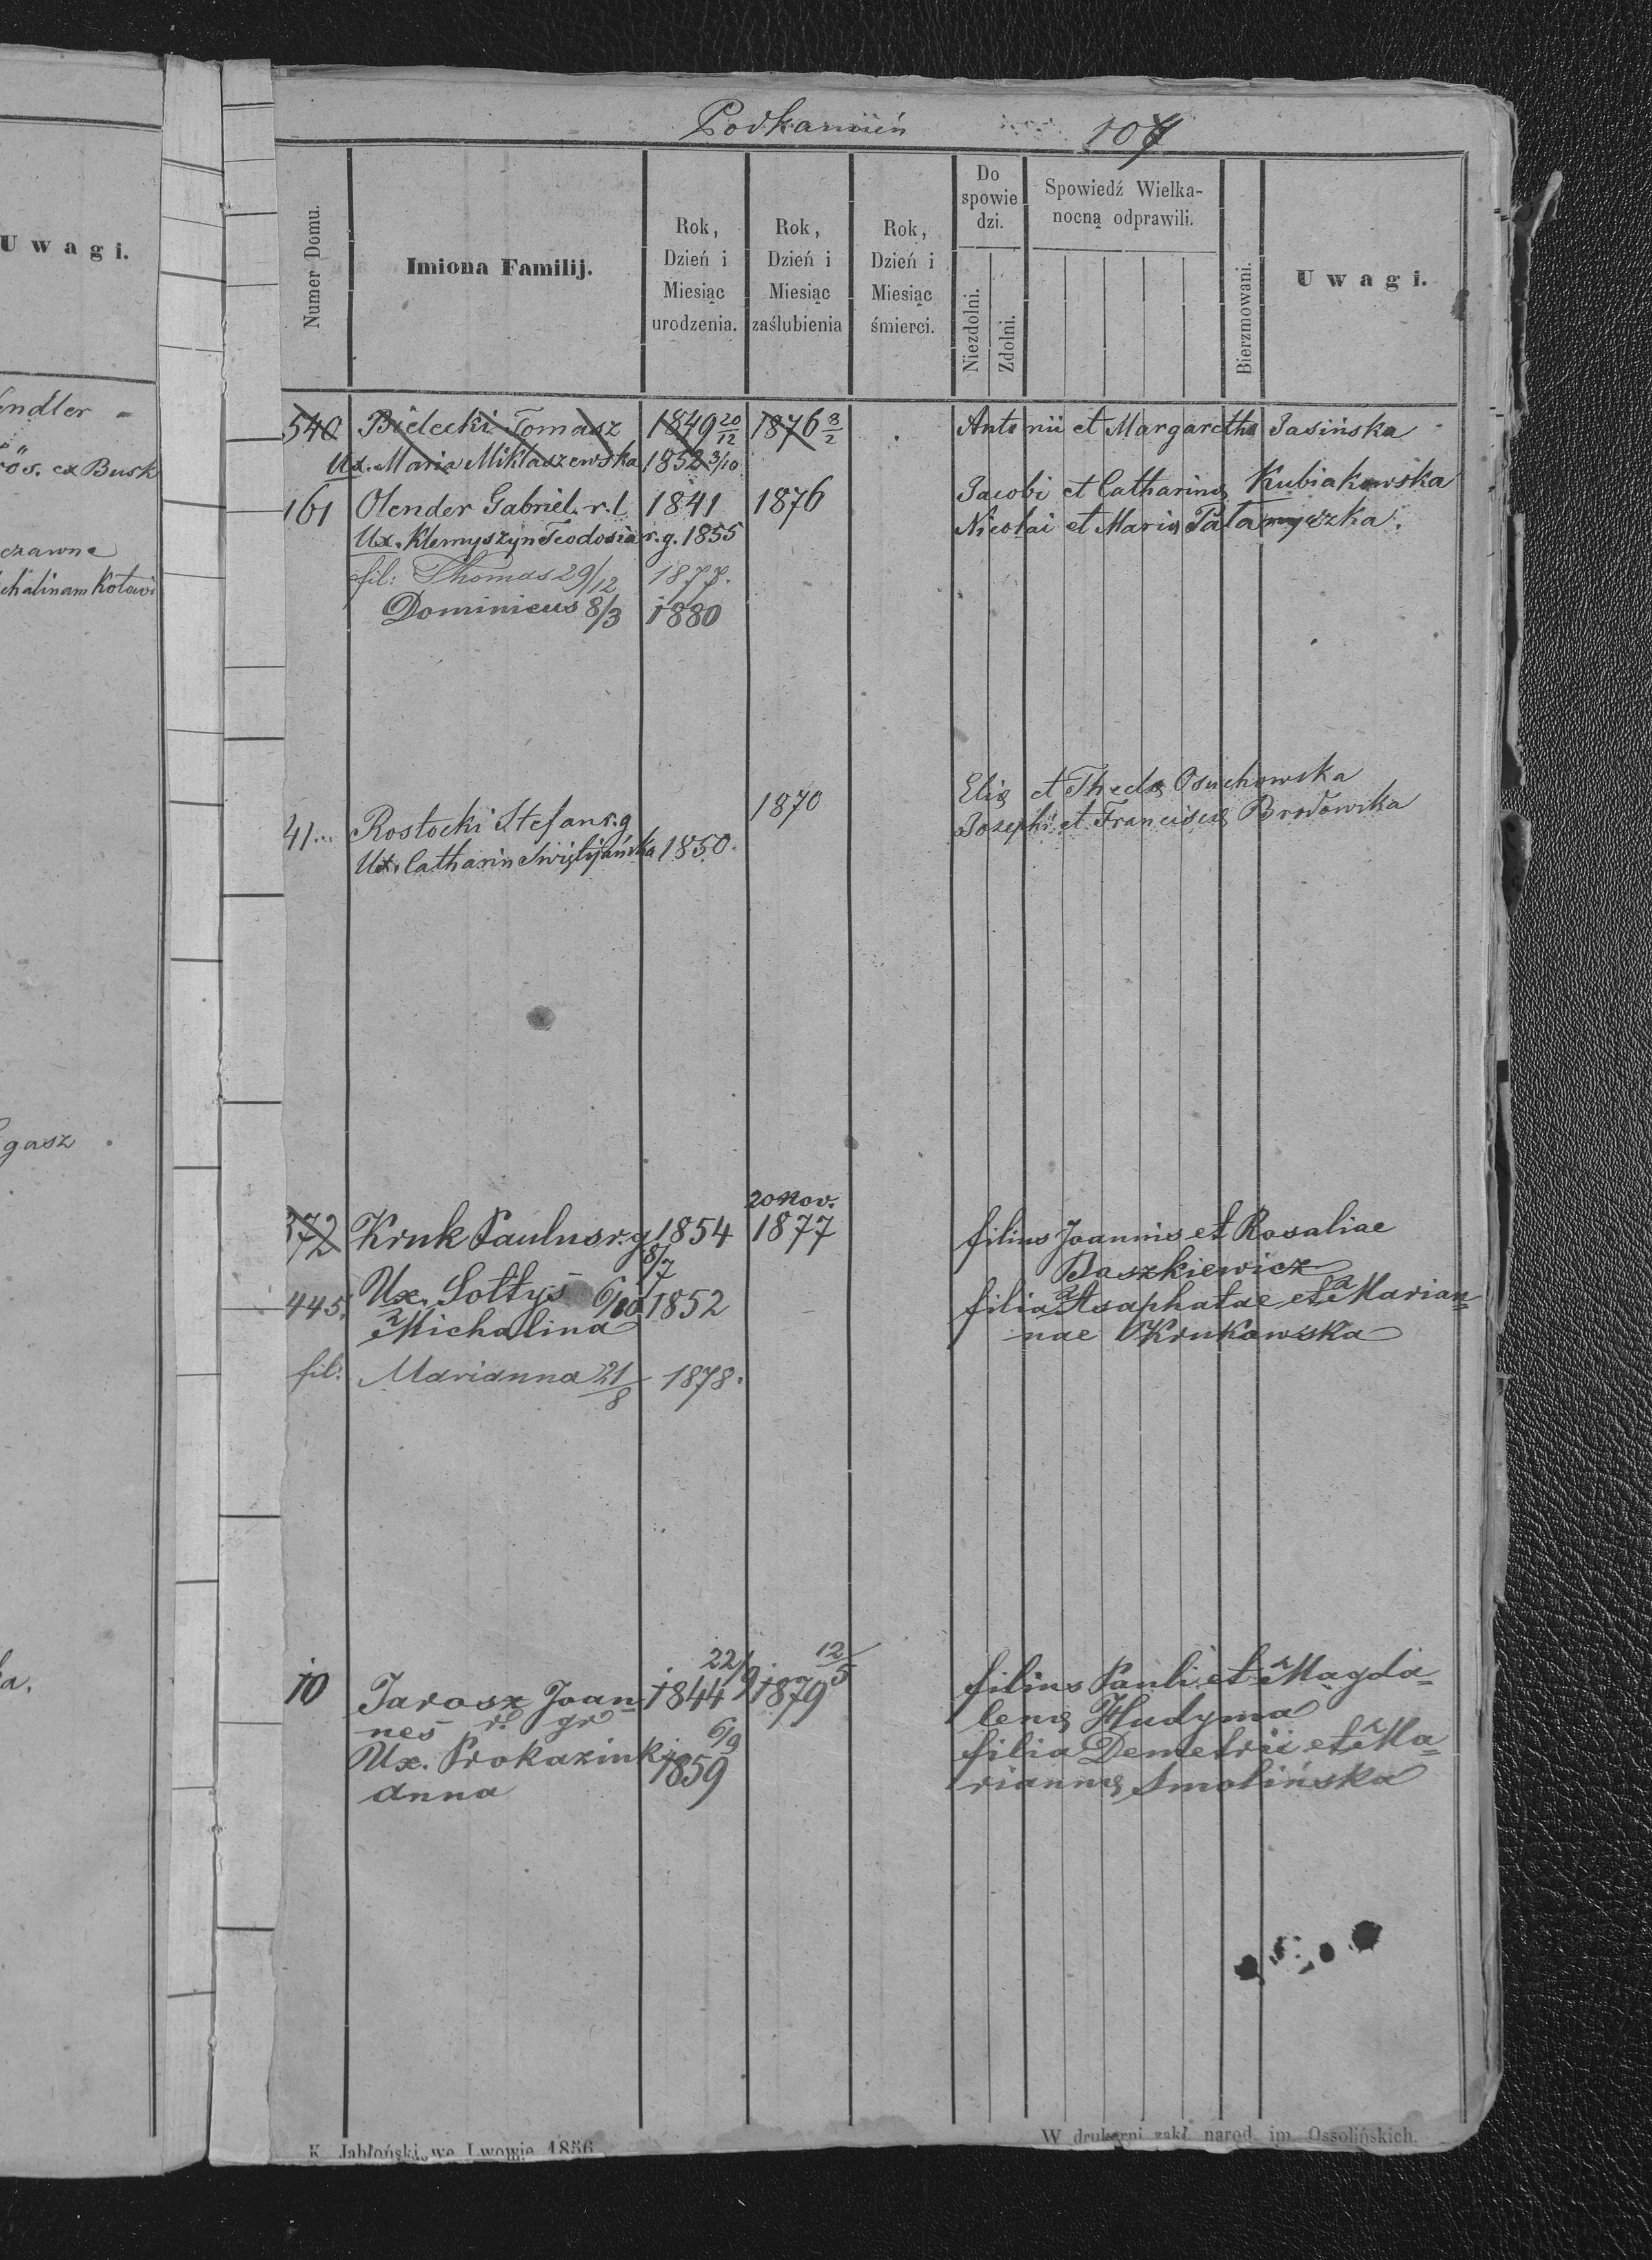 Podkamień 107
Uwagi.
Numer Domu.
Imiona Familij.
Rok, Dzień i Miesiąc urodzenia.
Rok, Dzień i Miesiąc zaślubienia
Rok, Dzień i Miesiąc śmierci.
Do spowie dzi.
Niezdolni.
Zdolni.
Spowiedź Wielka-
nocną odprawili.
Bierzmowani.
Uwagi.
endler
ös. ex Busk
czawne
chalinam Kotowi
gasz
a.
540 Bielecki Tomasz 1849 20/12 1876 3/2 Antonii et Margaretha Jasińska
Ux. Maria Miklaszewska 1852 3/10
161 Olender Gabriel. r. l 1841 1876 Jacobi et Catharinę Kubiakowska
Ux. Klemyszyn Teodosia r. g. 1855 Nicolai et Marię
fil: Thomas 29/12 1877.
Dominicus 8/3 1880
41 Rostocki Stefan r. g 1870 Elię et Theclę Osuchowska
Ux. Catharin Swiętyańska 1850 Josephi et Franciscę Brodowska
372 Kruk Paulus r. g 1854 8/7 20 Nov. 1877 filius Joannis et Rosaliae
Daszkiewicz
445. Ux. Sołtys 6/10 1852 filia Asaphatae et Marian=
Michalina nae Krukowska
fil: Marianna 21/8 1878.
10 Jarosz Joan= 1844 22/9 1879 12/5 filius Pauli et Magda=
nes rl gr lenę Hudyma
Ux. Prokazink 6/9 1859 filia Demetrii et Ma=
Anna riannę Smolińska
K. Jabłoński, we Lwowie 1856
W drukarni zakł. narod. im. Ossolińskich.